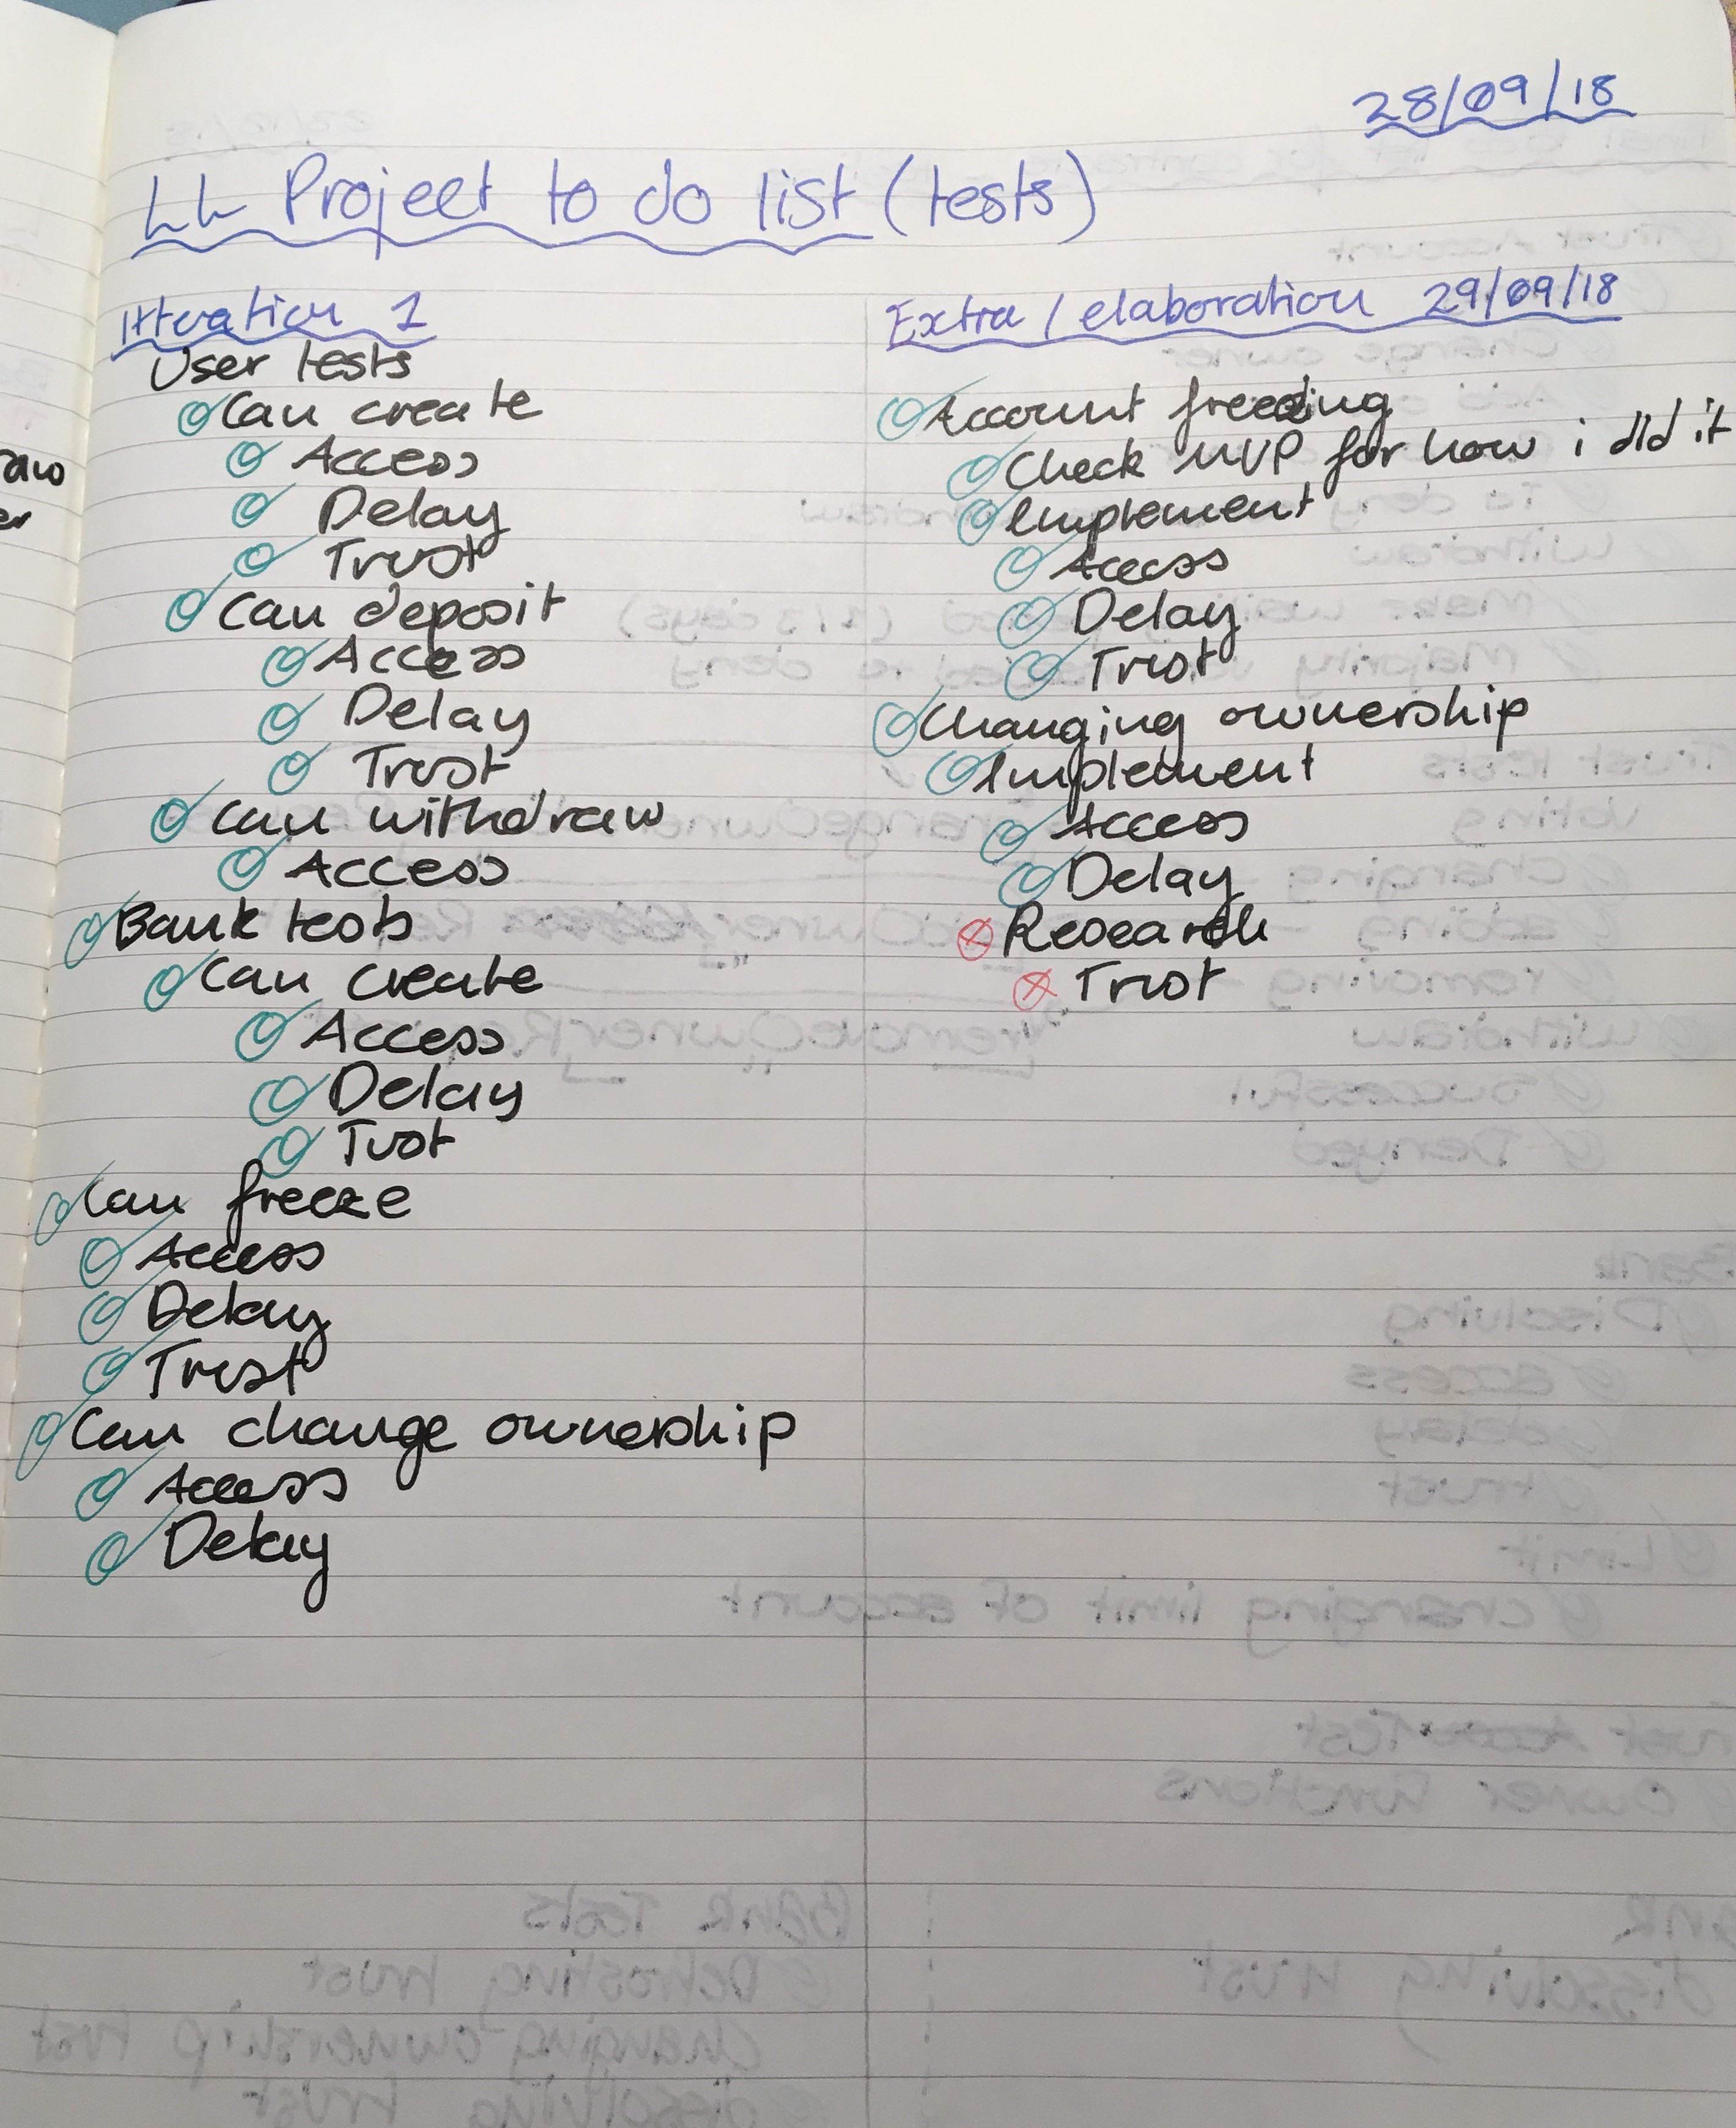 28/09/18
LL Project to do list (tests)
Itteration 1
User tests
Can create
Access
Delay
Trust
Can deposit
Access
Delay
Trust
Can withdraw
Access
Bank tests
Can create
Access
Delay
Trust
Can freeze
Access
Delay
Trust
Can change ownership
Access
Delay
Extra / elaboration 29/09/18
Account freezing
Check MVP for how i did it
Implement
Access
Delay
Trust
Changing ownership
Implement
Access
Delay
Research
Trust